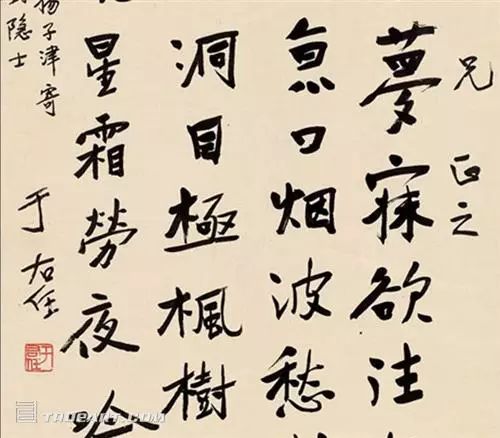 兄 正之
夢寐欲往
京口烟波愁
洞目極楓樹
星霜勞夜
揚子津寄
隐士
于右任